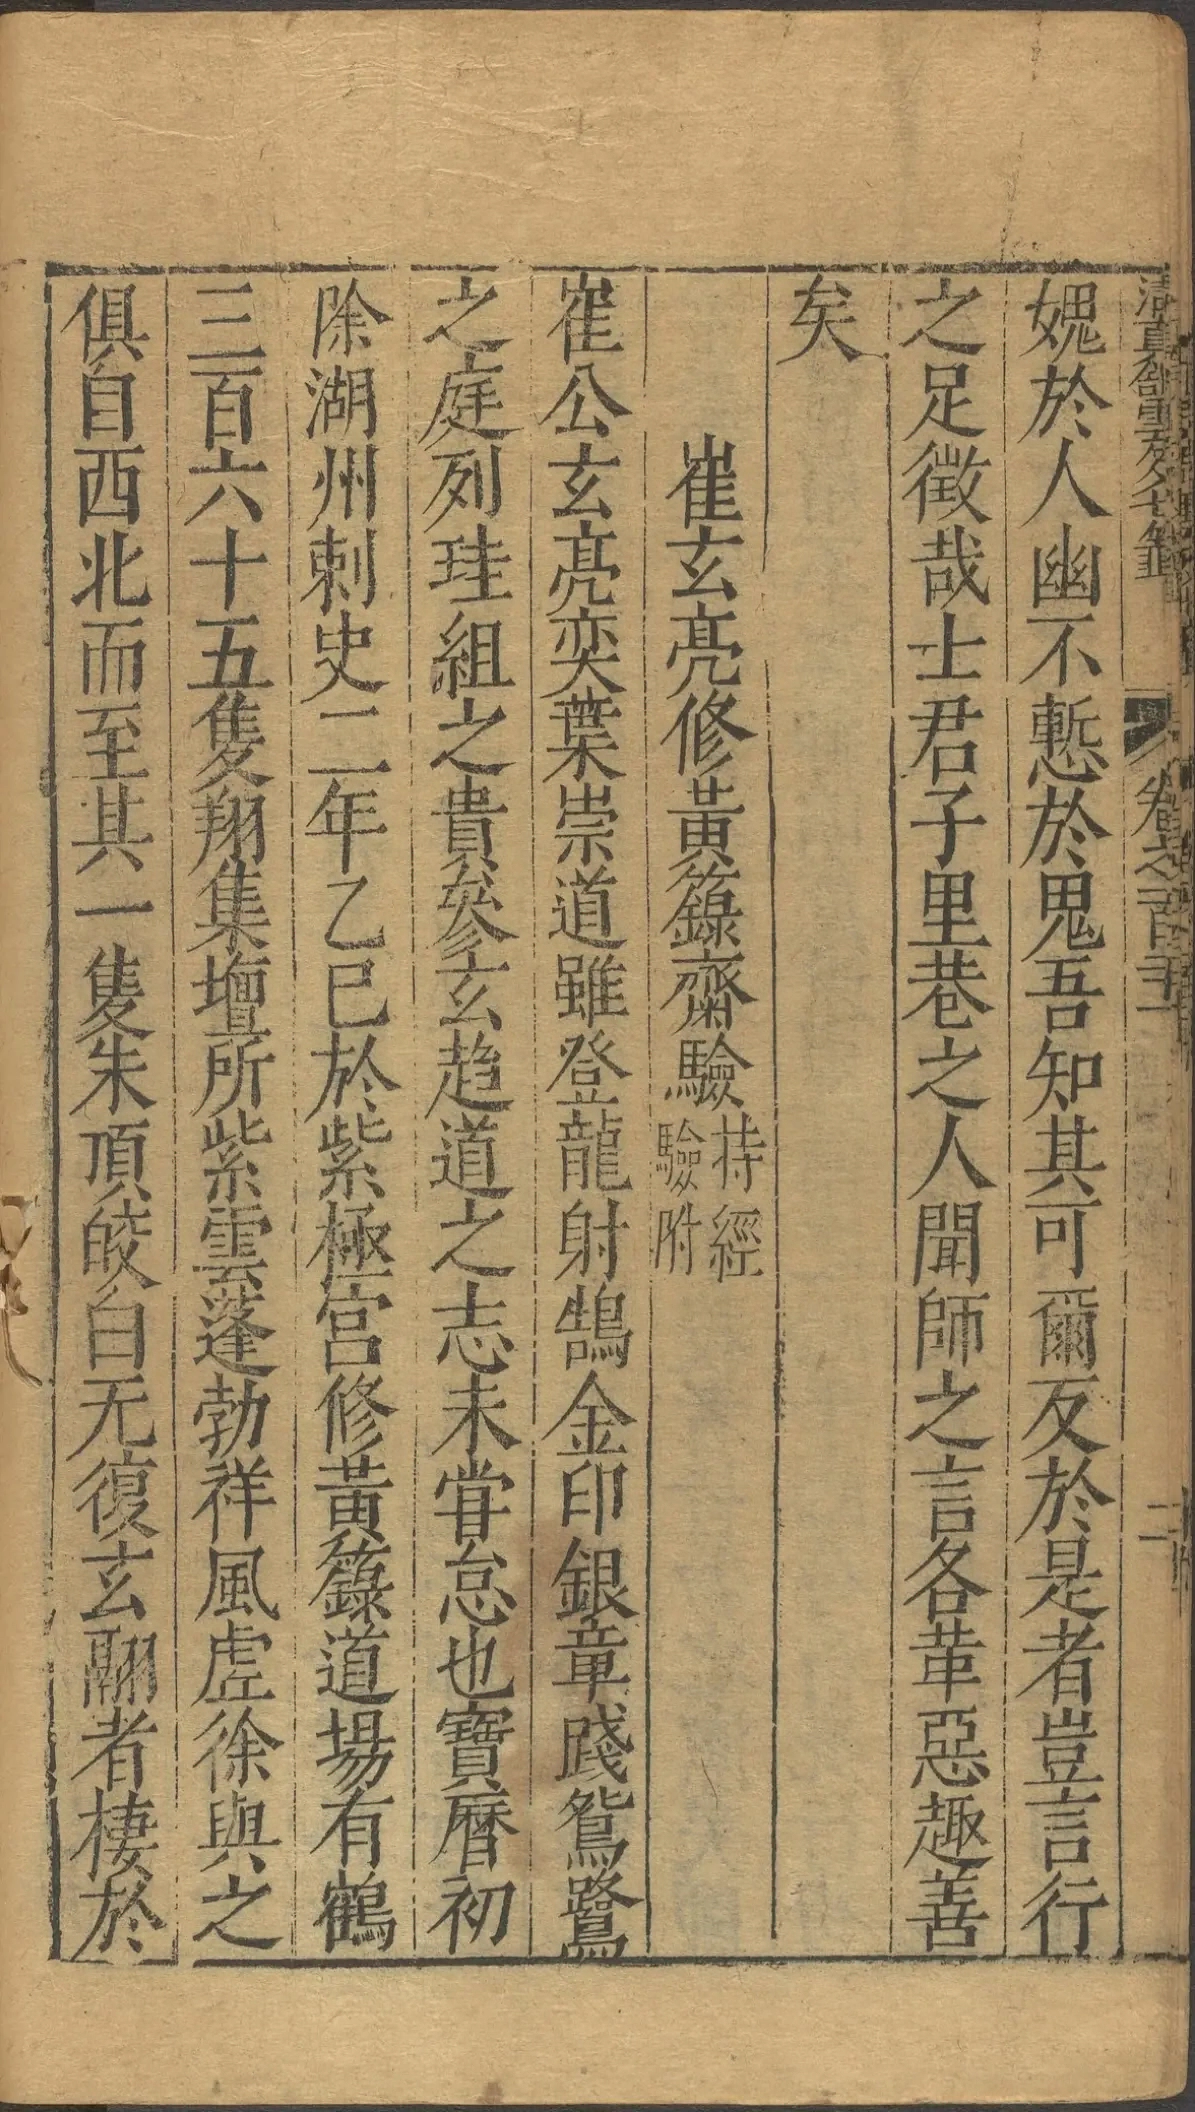 媿於人幽不慙於鬼吾知其可爾反於是者豈言行
之足徵哉士君子里巷之人聞師之言各革惡趣善
矣
崔玄亮修黃籙齋驗持經驗附
崔公玄亮奕葉崇道雖登龍射鵠金印銀章踐鴛鷺
之庭列珪組之貴參玄趨道之志未甞怠也寶曆初
除湖州刺史二年乙巳於紫極宮修黃籙道場有鶴
三百六十五隻翔集壇所紫雲蓬勃祥風虛徐與之
俱自西北而至其一隻朱頂皎白无復玄翮者棲於